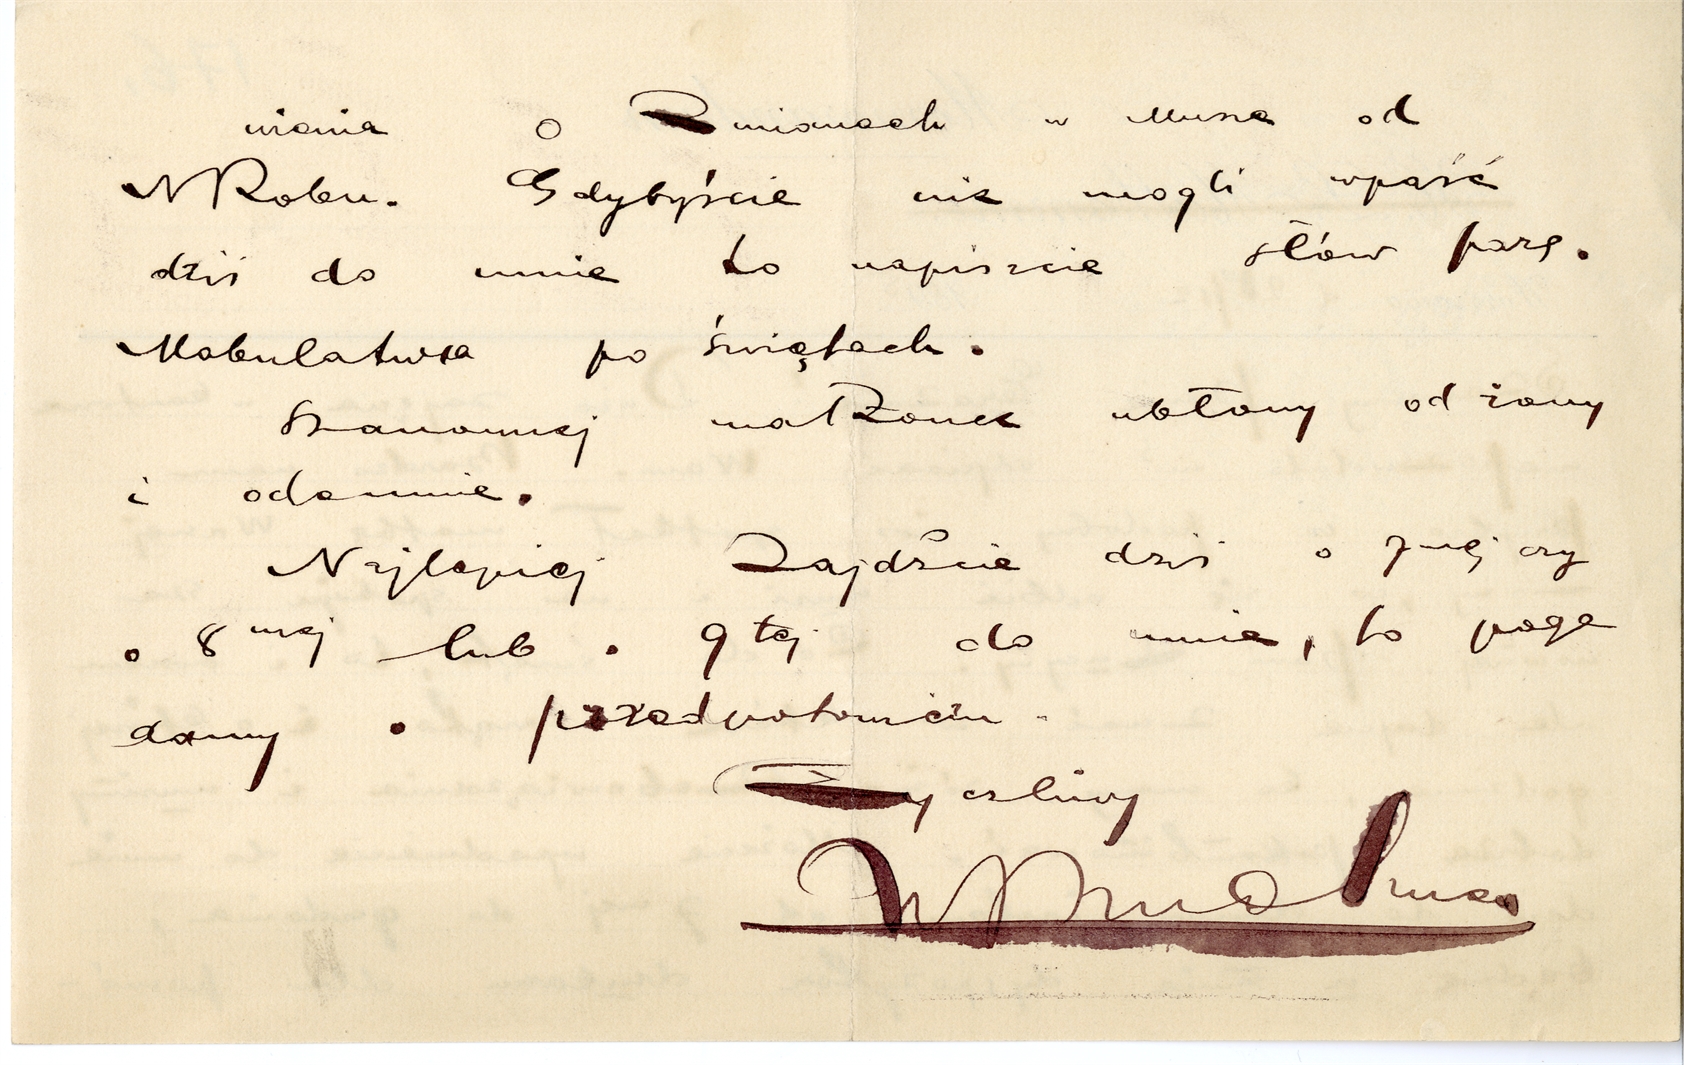 wiania o Zmianach w Muzie od
N Roku. Gdybyście nie mogli wpaść
dziś do mnie to napiszcie słów parę.
Makulatura po świętach.
Szanownej małżonce ukłony od żony
i odemnie.
Najlepiej Zajdźcie dziś o 7mej czy
o 8mej lub o 9tej do mnie, to poga
damy o przedpotowiciu.
Życzliwy